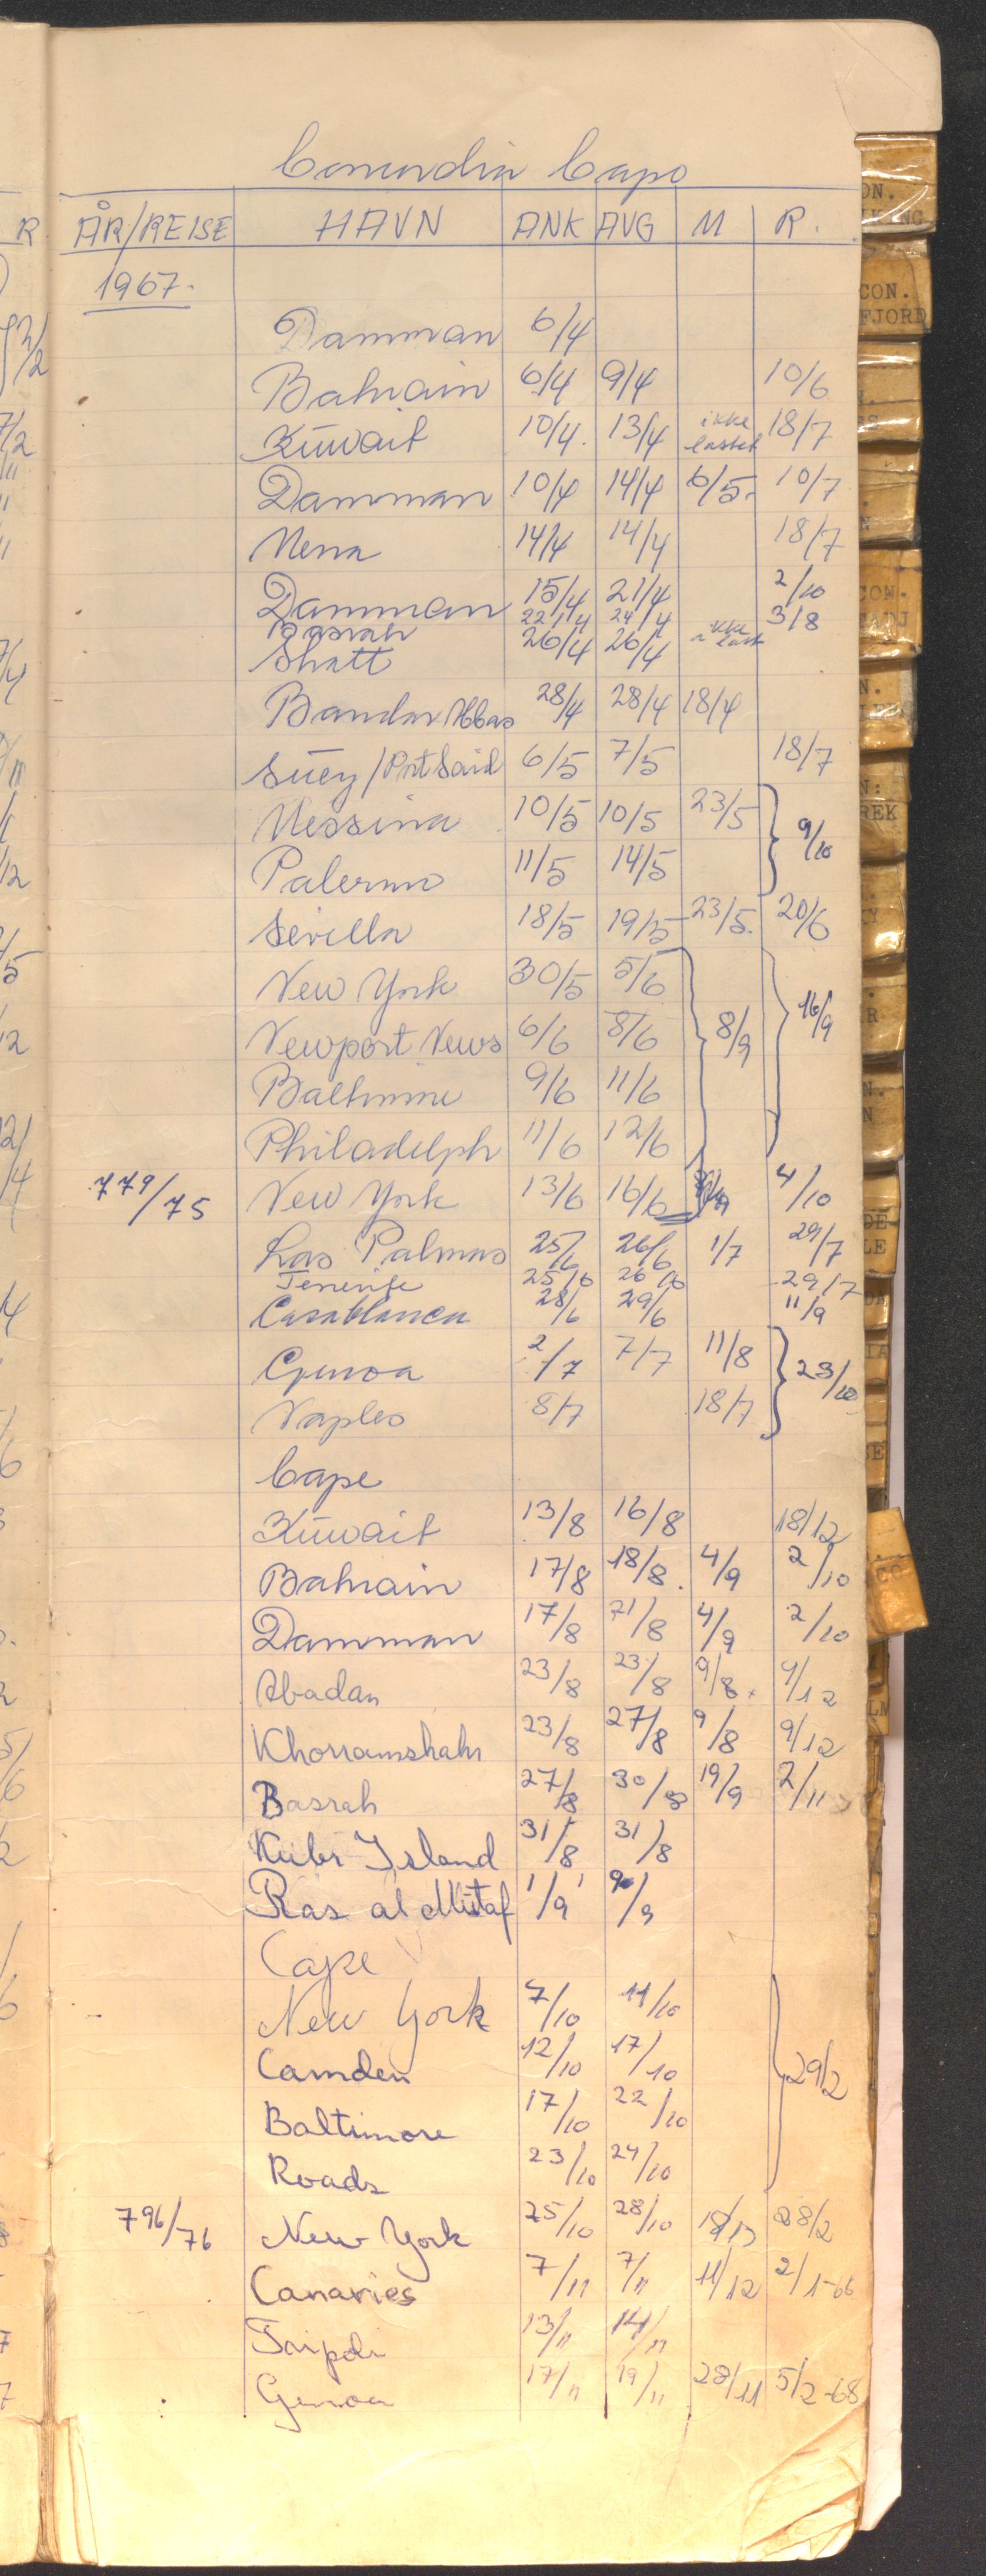 Concordia Capo
ÅR/REISE HAVN ANK AVG M R.
1967.
Damman 6/4
Bahrain 6/4 9/4 10/6
Kuwait 10/4. 13/4 ikke lastet 18/7
Damman 10/4 14/4 6/5. 10/7
Mena 14/4 14/4 18/7
Damman 15/4 21/4 2/10
Basrah 22/4 24/4 3/8
Shatt 26/4 26/4 ikke last
Bandar Abbas 28/4 28/4 18/4
Suez/Port Said 6/5 7/5 18/7
Messina 10/5 10/5 23/5
Palermo 11/5 14/5 9/10
Sevilla 18/5 19/5 23/5. 20/6
New York 30/5 5/6
Newport News 6/6 8/6 8/9 16/9
Baltimore 9/6 11/6
Philadelph 11/6 12/6
779/75 New York 13/6 16/6 4/10
Las Palmas 25/6 26/6 1/7 29/7
Tenerife 25/6 26/6 29/7
Casablanca 28/6 29/6 11/9
Genoa 2/7 7/7 11/8 23/10
Naples 8/7 18/7
Cape
Kuwait 13/8 16/8 18/12
Bahrain 17/8 18/8. 4/9 2/10
Damman 17/8 21/8 4/9 2/10
Abadan 23/8 23/8 9/8. 9/12
Khorramshahr 23/8 27/8 9/8 9/12
Basrah 27/8 30/8 19/9 2/11
Kubr Island 31/8 31/8
Ras al Mutaf 1/9 /9
Cape
New York 7/10 11/10
Camden 12/10 17/10 29/2
Baltimore 17/10 22/10
Roads 23/10 24/10
796/76 New York 25/10 28/10 28/2
Canaries 7/11 7/11 11/12 2/1-66
Tripoli 13/11 14/11
Genoa 17/11 19/11 28/11 5/2-68